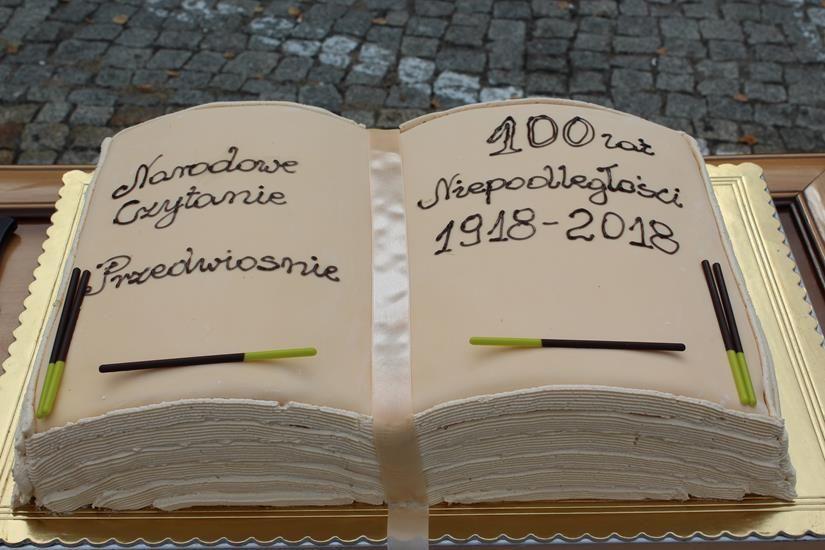 Narodowe
Czytanie
Przedwiosnie
100 lat
Niepodległości
1918-2018